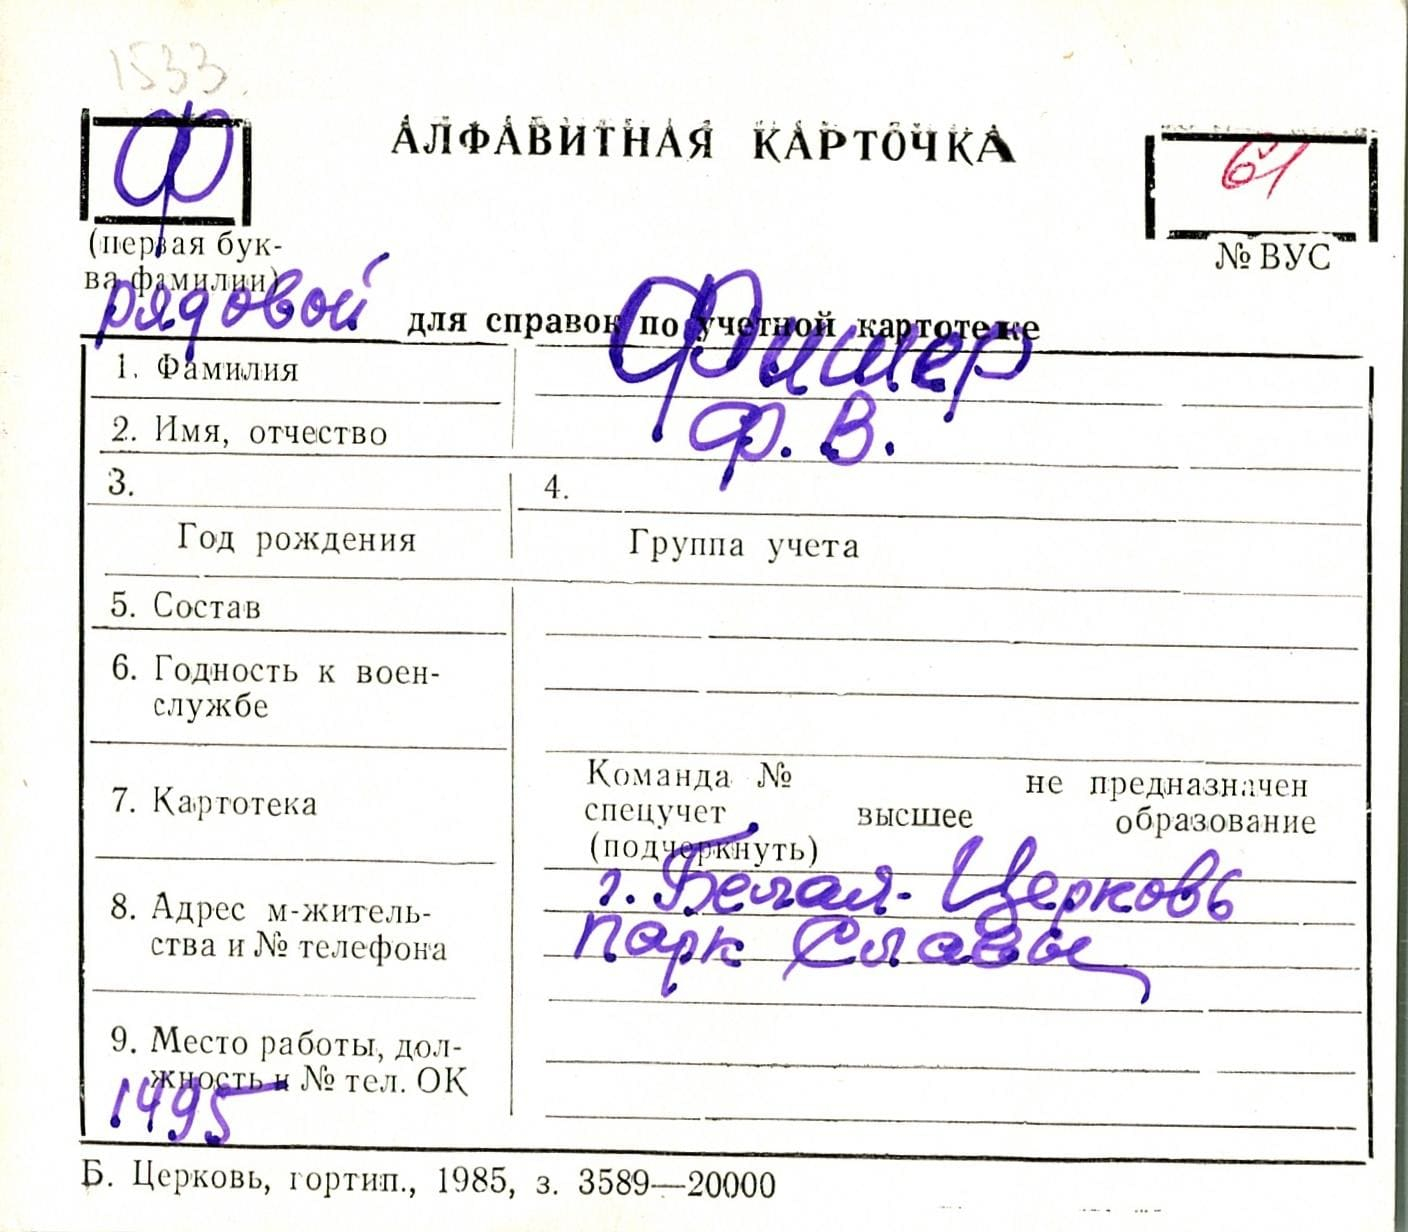 1533.
Ф
АЛФАВИТНАЯ КАРТОЧКА
61
(первая бук-
ва фамилии)
№ ВУС
рядовой
для справок по учетной картотеке
1. Фамилия
Фишер
2. Имя, отчество
Ф. В.
3.
4.
Год рождения
Группа учета
5. Состав
6. Годность к воен-
службе
7. Картотека
Команда № не предназначен
спецучет высшее образование
(подчеркнуть)
8. Адрес м-житель-
ства и № телефона
г. Белая-Церковь
парк Славы
9. Место работы, дол-
жность и № тел. ОК
1495
Б. Церковь, гортип., 1985, з. 3589—20000